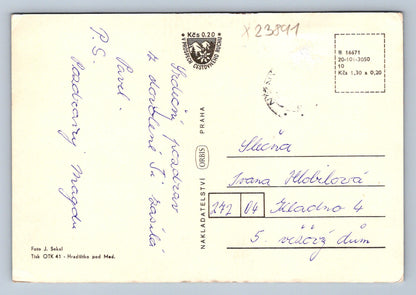 Srdečný pozdrav
z dovolené Ti zasílá
Pavel.
P.S.
Pozdravuj Magdu
Kčs 0,20
X23891
B 16671
20-101-3050
10
Kčs 1,30 + 0,20
NAKLADATELSTVÍ ORBIS PRAHA
Slečna
Ivana Hlobilová
272 04 Kladno 4
5. věžový dům
Foto J. Sokol
Tisk OTK 41 - Hradištko pod Med.